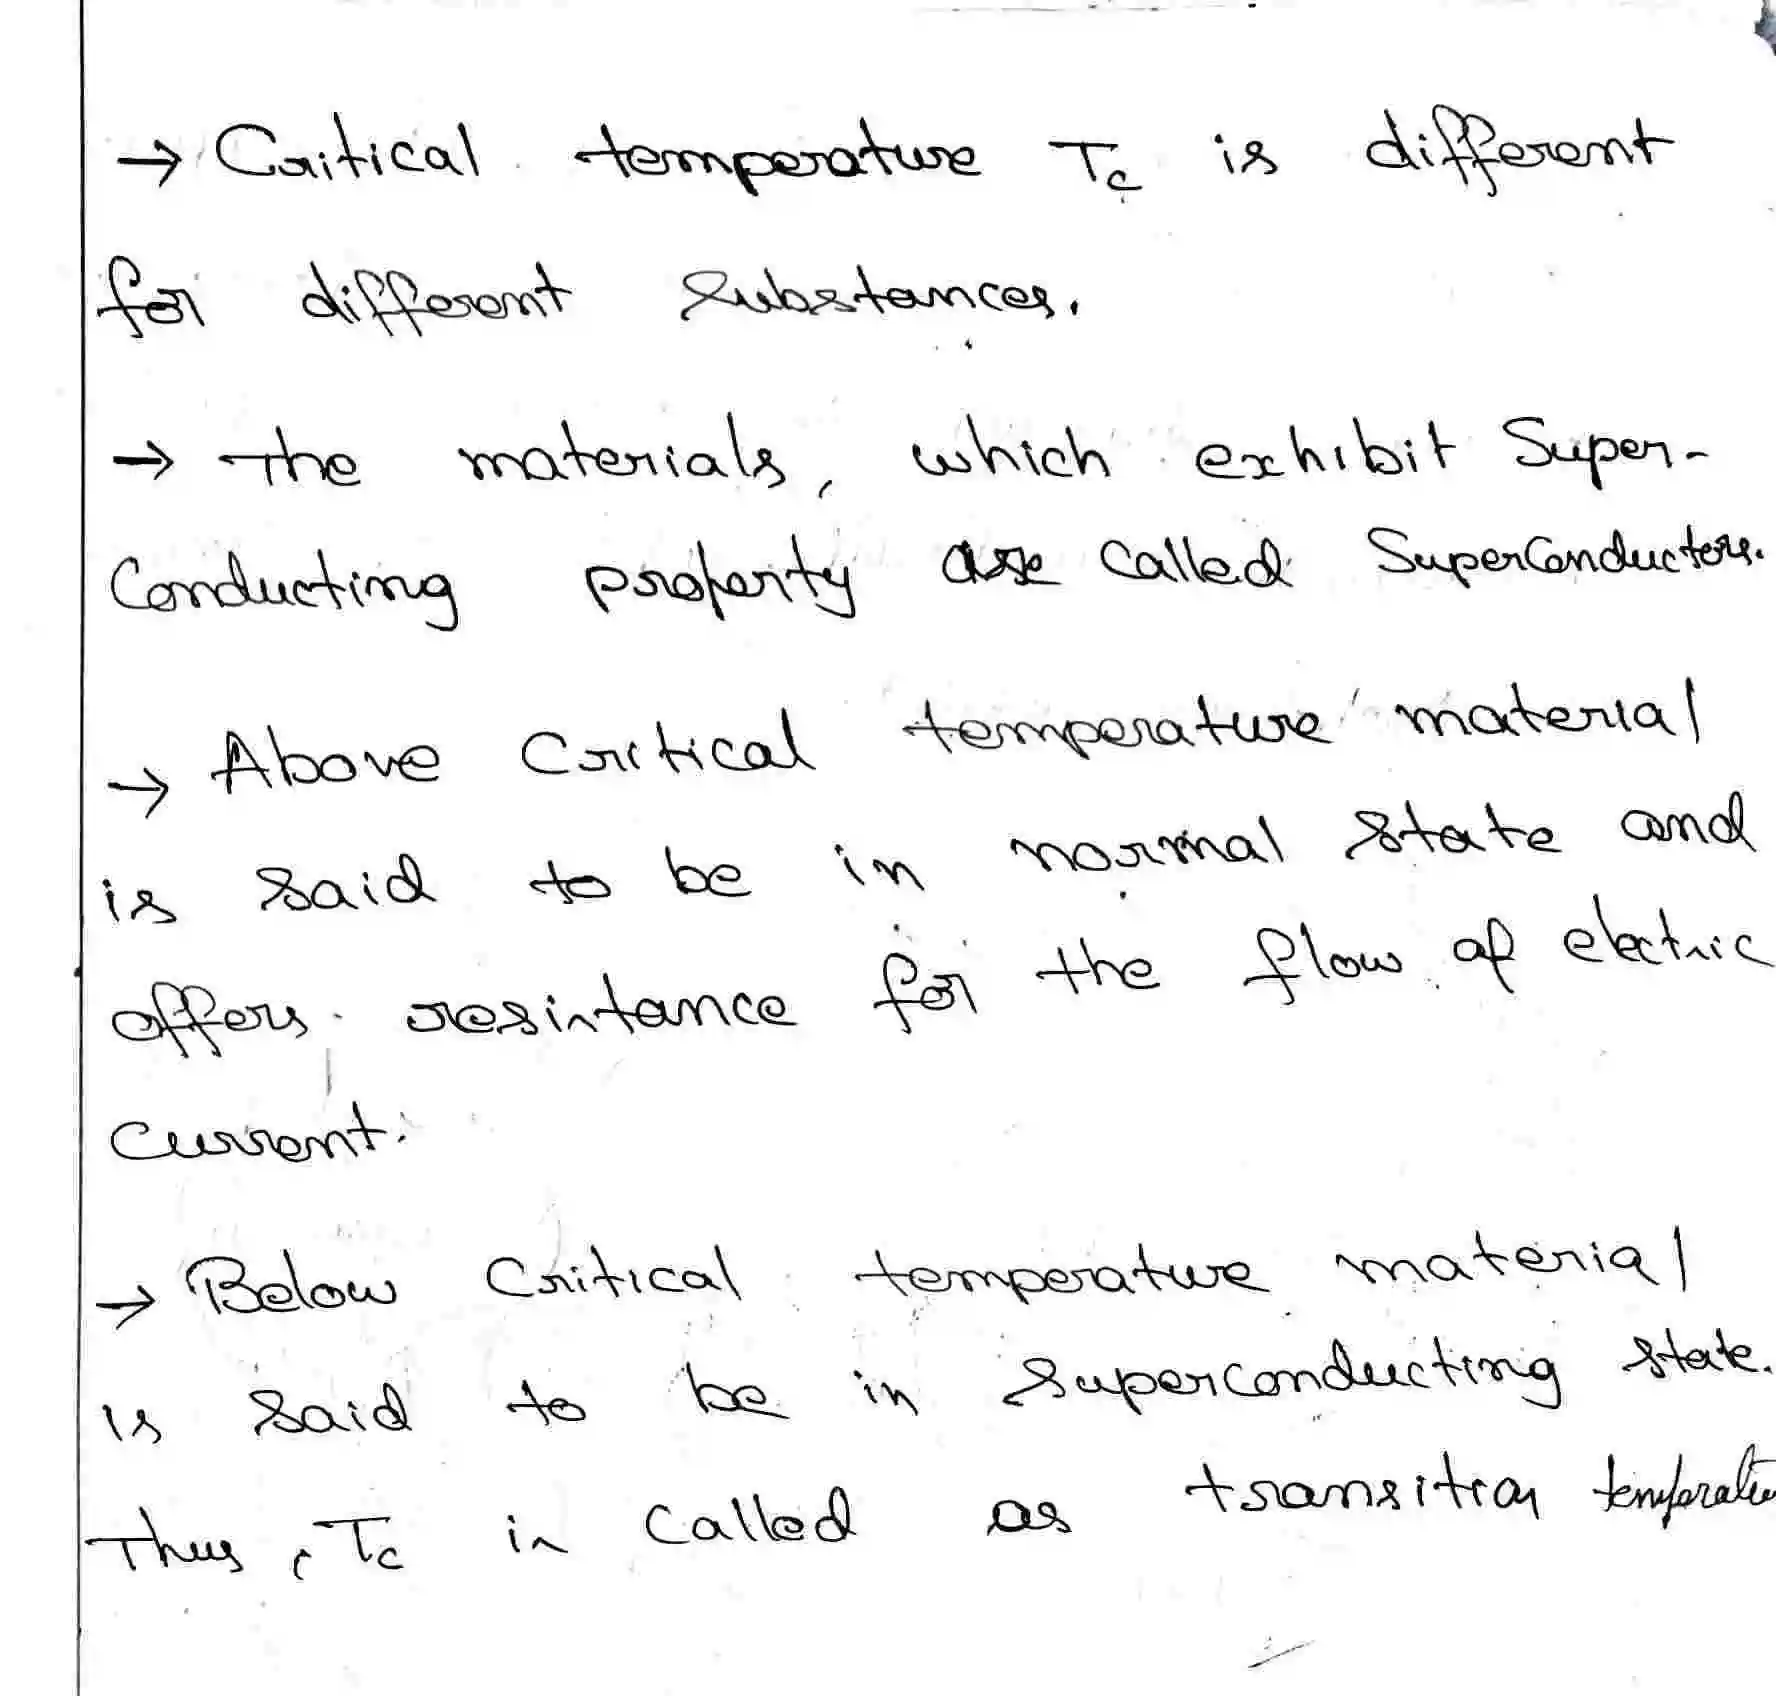 → Critical temperature Tc is different
for different substances.
→ The materials, which exhibit Super-
Conducting property are called SuperConductors.
→ Above Critical temperature material
is said to be in normal state and
offers resistance for the flow of electric
current.
→ Below Critical temperature material
is said to be in superconducting state.
Thus, Tc is called as transition temperatu